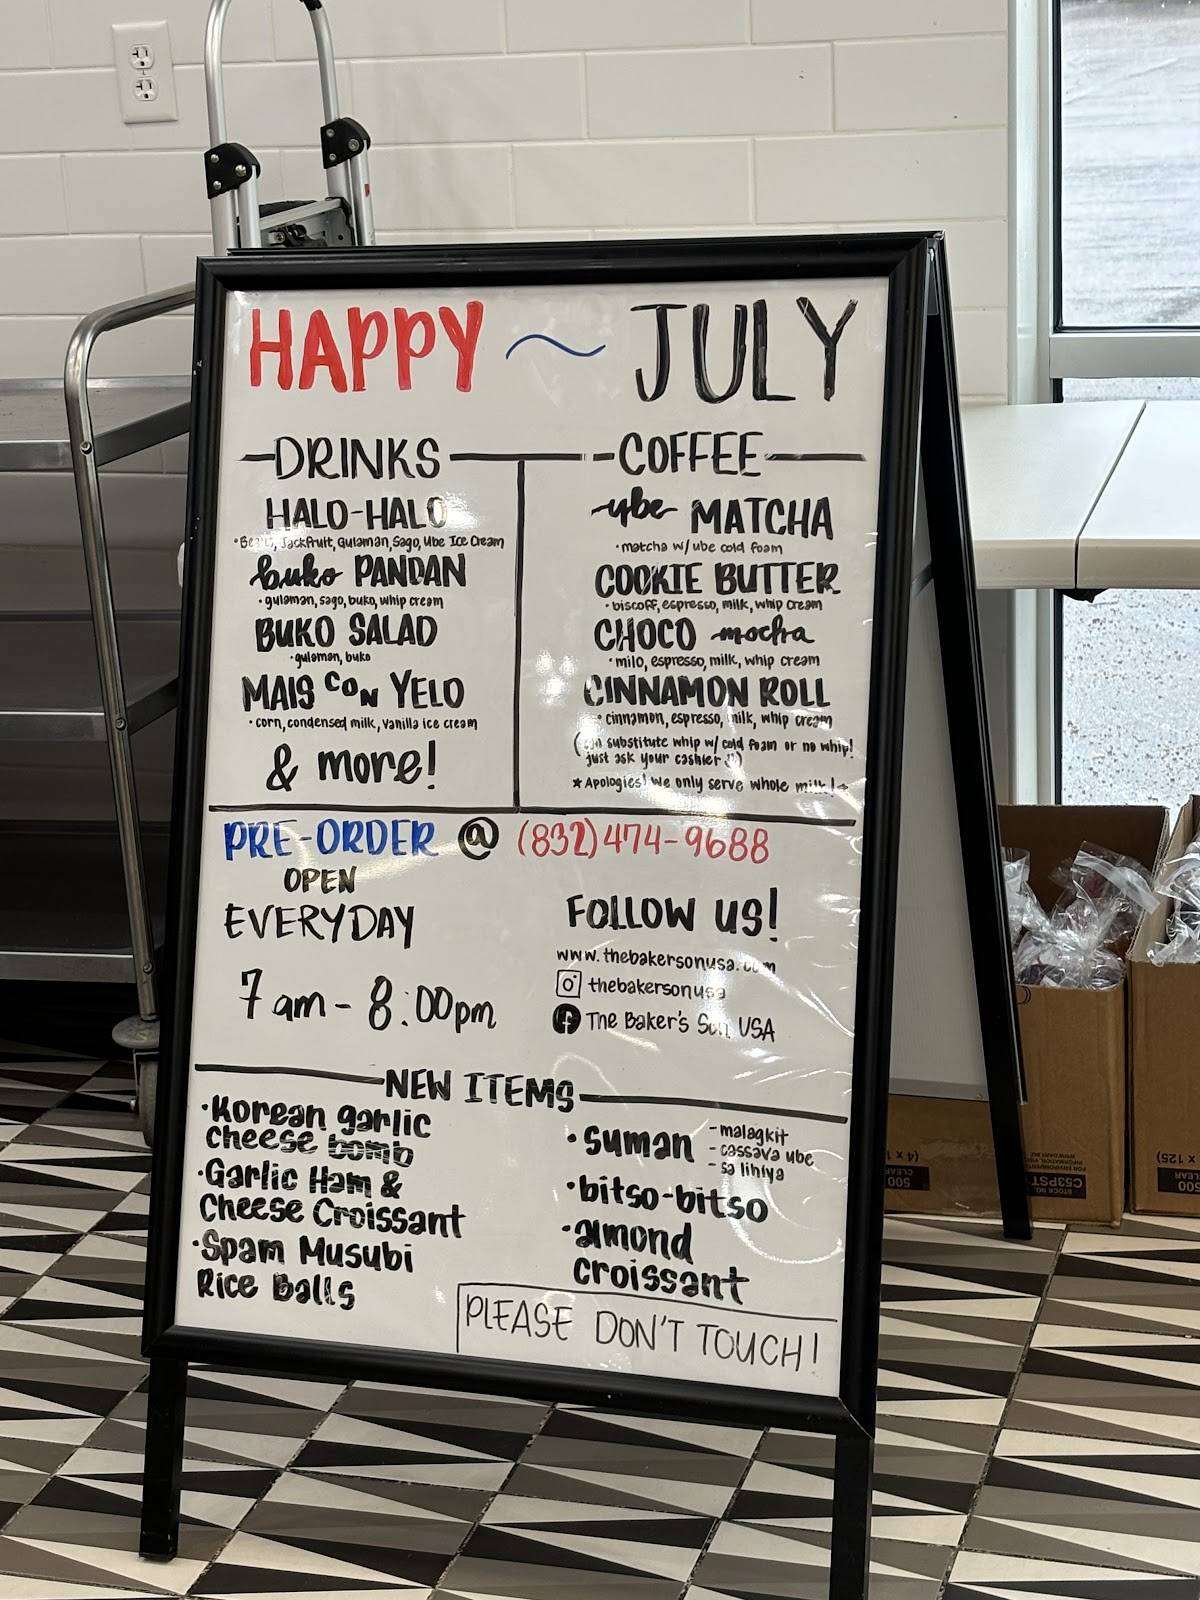 HAPPY ~ JULY
DRINKS
HALO-HALO
• Beans, Jackfruit, Gulaman, Sago, Ube Ice Cream
buko PANDAN
• gulaman, sago, buko, whip cream
BUKO SALAD
• gulaman, buko
MAIS CON YELO
• corn, condensed milk, vanilla ice cream
& more!
COFFEE
ube MATCHA
• matcha w/ ube cold foam
COOKIE BUTTER
• biscoff, espresso, milk, whip cream
CHOCO mocha
• milo, espresso, milk, whip cream
CINNAMON ROLL
• cinnamon, espresso, milk, whip cream
(can substitute whip w/ cold foam or no whip!
just ask your cashier :))
* Apologies! We only serve whole milk! *
PRE-ORDER @ (832)474-9688
OPEN
EVERYDAY
7am - 8:00pm
FOLLOW us!
www.thebakersonusa.com
thebakersonusa
The Baker's Son USA
NEW ITEMS
• Korean garlic
cheese bomb
• Garlic Ham &
Cheese Croissant
• Spam Musubi
Rice Balls
• suman - malagkit
- cassava ube
- sa lihiya
• bitso-bitso
• almond
croissant
PLEASE DON'T TOUCH!
C53PST